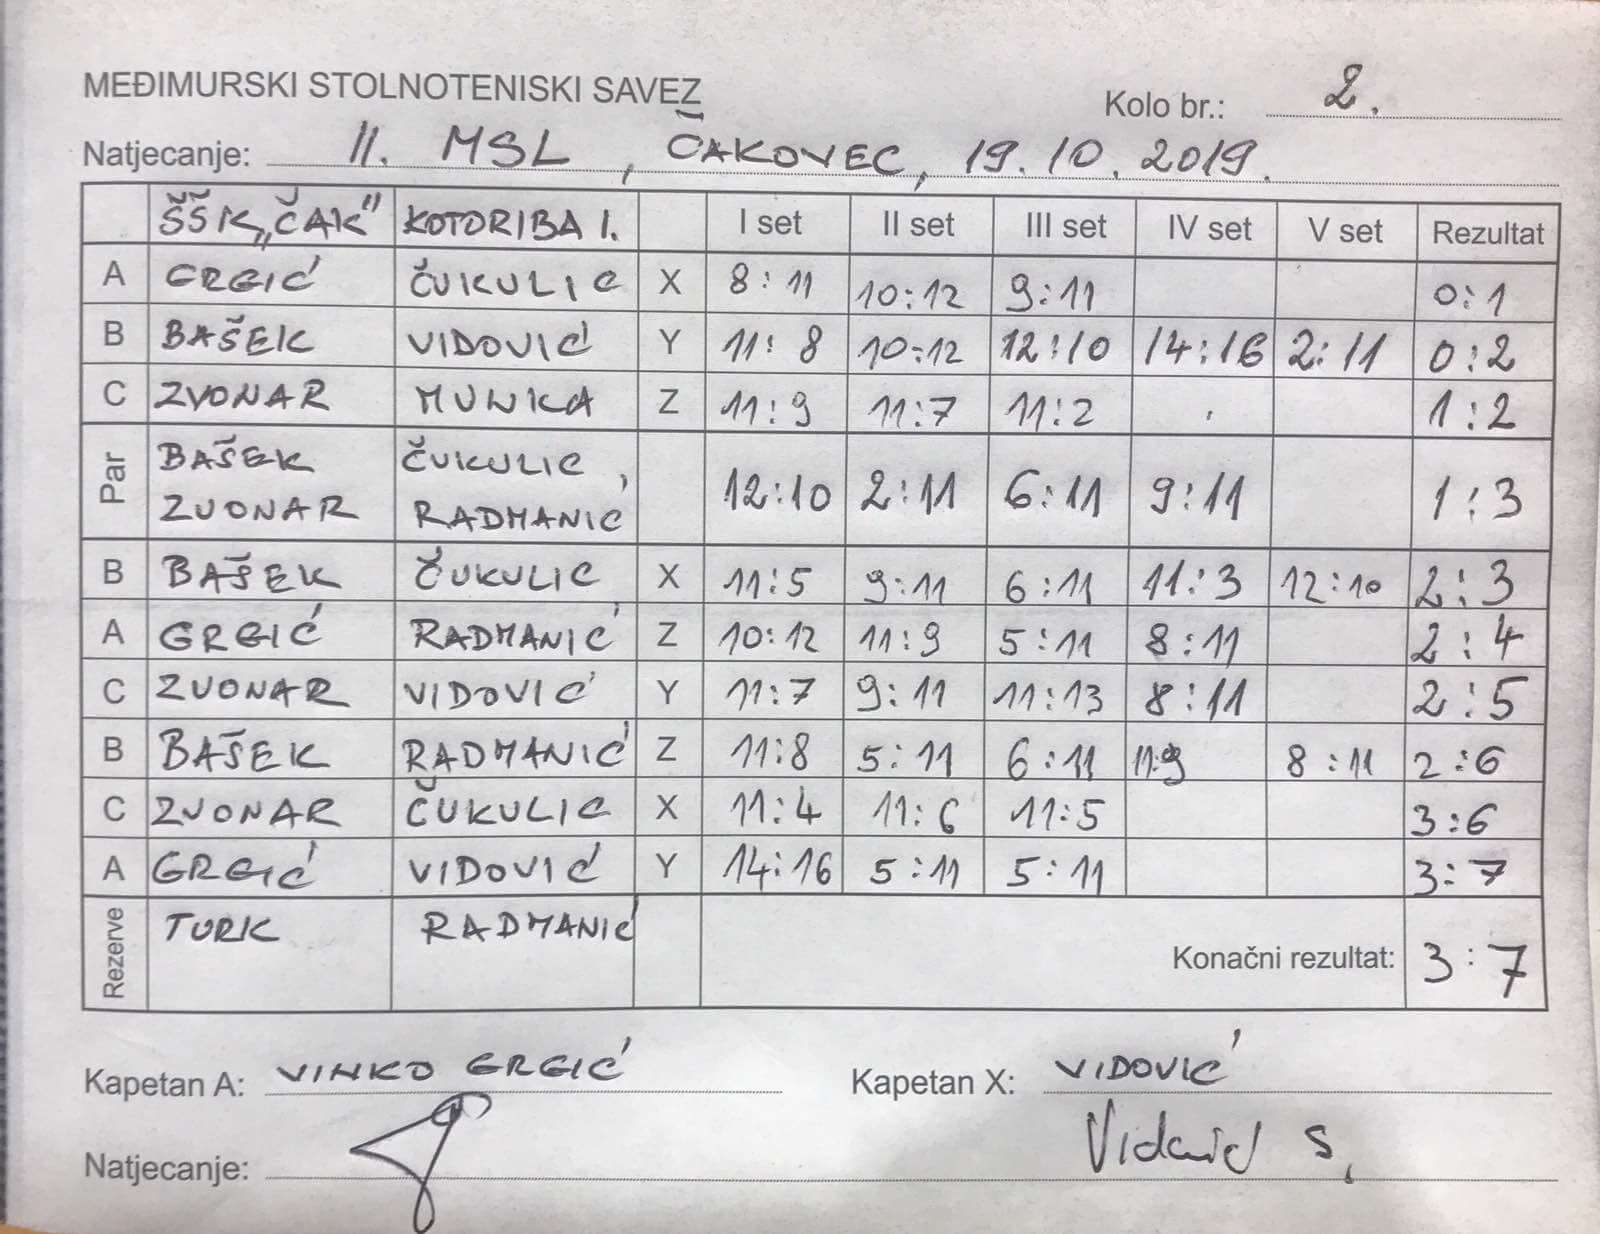 MEĐIMURSKI STOLNOTENISKI SAVEZ
Kolo br.: 2.
Natjecanje: II. MSL, ČAKOVEC, 19.10.2019.
ŠŠK „ČAK" KOTORIBA I. I set II set III set IV set V set Rezultat
A GRGIĆ ČUKULIC X 8:11 10:12 9:11 0:1
B BAŠEK VIDOVIĆ Y 11:8 10:12 12:10 14:16 2:11 0:2
C ZVONAR MUNKA Z 11:9 11:7 11:2 1:2
Par BAŠEK ČUKULIC,
ZVONAR RADMANIC 12:10 2:11 6:11 9:11 1:3
B BAŠEK ČUKULIC X 11:5 9:11 6:11 11:3 12:10 2:3
A GRGIĆ RADMANIĆ Z 10:12 11:9 5:11 8:11 2:4
C ZVONAR VIDOVIĆ Y 11:7 9:11 11:13 8:11 2:5
B BAŠEK RADMANIĆ Z 11:8 5:11 6:11 11:9 8:11 2:6
C ZVONAR ČUKULIC X 11:4 11:6 11:5 3:6
A GRGIĆ VIDOVIĆ Y 14:16 5:11 5:11 3:7
Rezerve TURK RADMANIĆ
Konačni rezultat: 3:7
Kapetan A: VINKO GRGIĆ Kapetan X: VIDOVIĆ
Natjecanje: